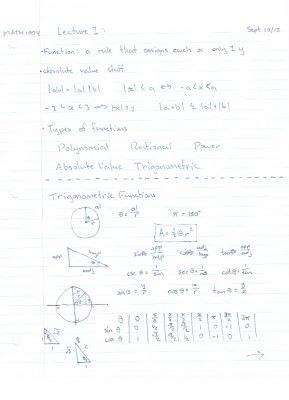 MATH 1004 Lecture 1: Sept 10/12
• Function: a rule that assigns each x only 1 y
• Absolute value stuff
|ab| = |a| |b| |x| ≤ a ⇔ -a ≤ x ≤ a
|a+b| ≤ |a| + |b|
• Types of functions
Polynomial Rational Power
Absolute Value Trigonometric
Trigonometric Functions
π = 180°
A = ½θr²
opp hyp adj
sinθ = opp/hyp cosθ = adj/hyp tanθ = opp/adj
cscθ = 1/sin secθ = 1/cos cotθ = 1/tan
sinθ = y/r cosθ = x/r
θ 0
sin θ 0
cos θ 1